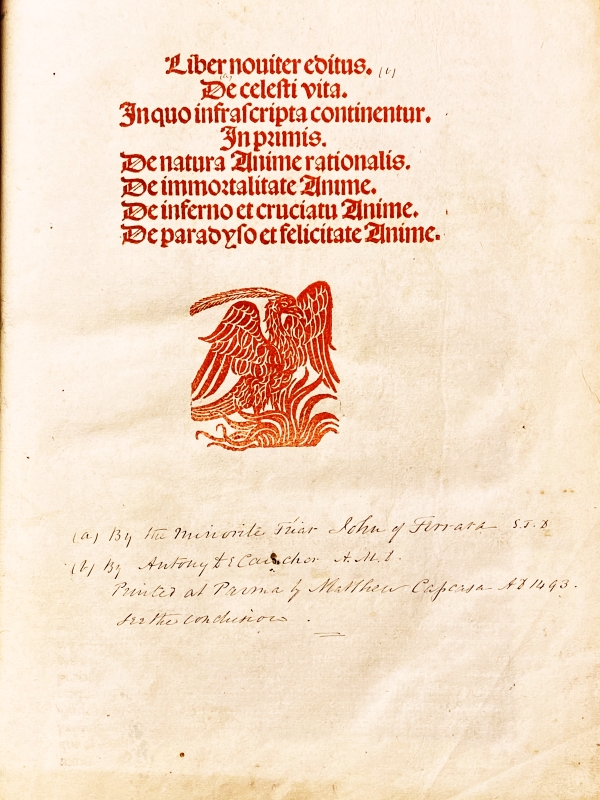 Liber nouiter editus. (b)
(a)
De celesti vita.
In quo infrascripta continentur.
In primis.
De natura Anime rationalis.
De immortalitate Anime.
De inferno et cruciatu Anime.
De paradyso et felicitate Anime.
(a) By the Minorite Friar John of Ferrara S.T.D
(b) By Antony A.M.
Printed at Parma by Matthew Capcasa AD 1493.
See the conclusion.